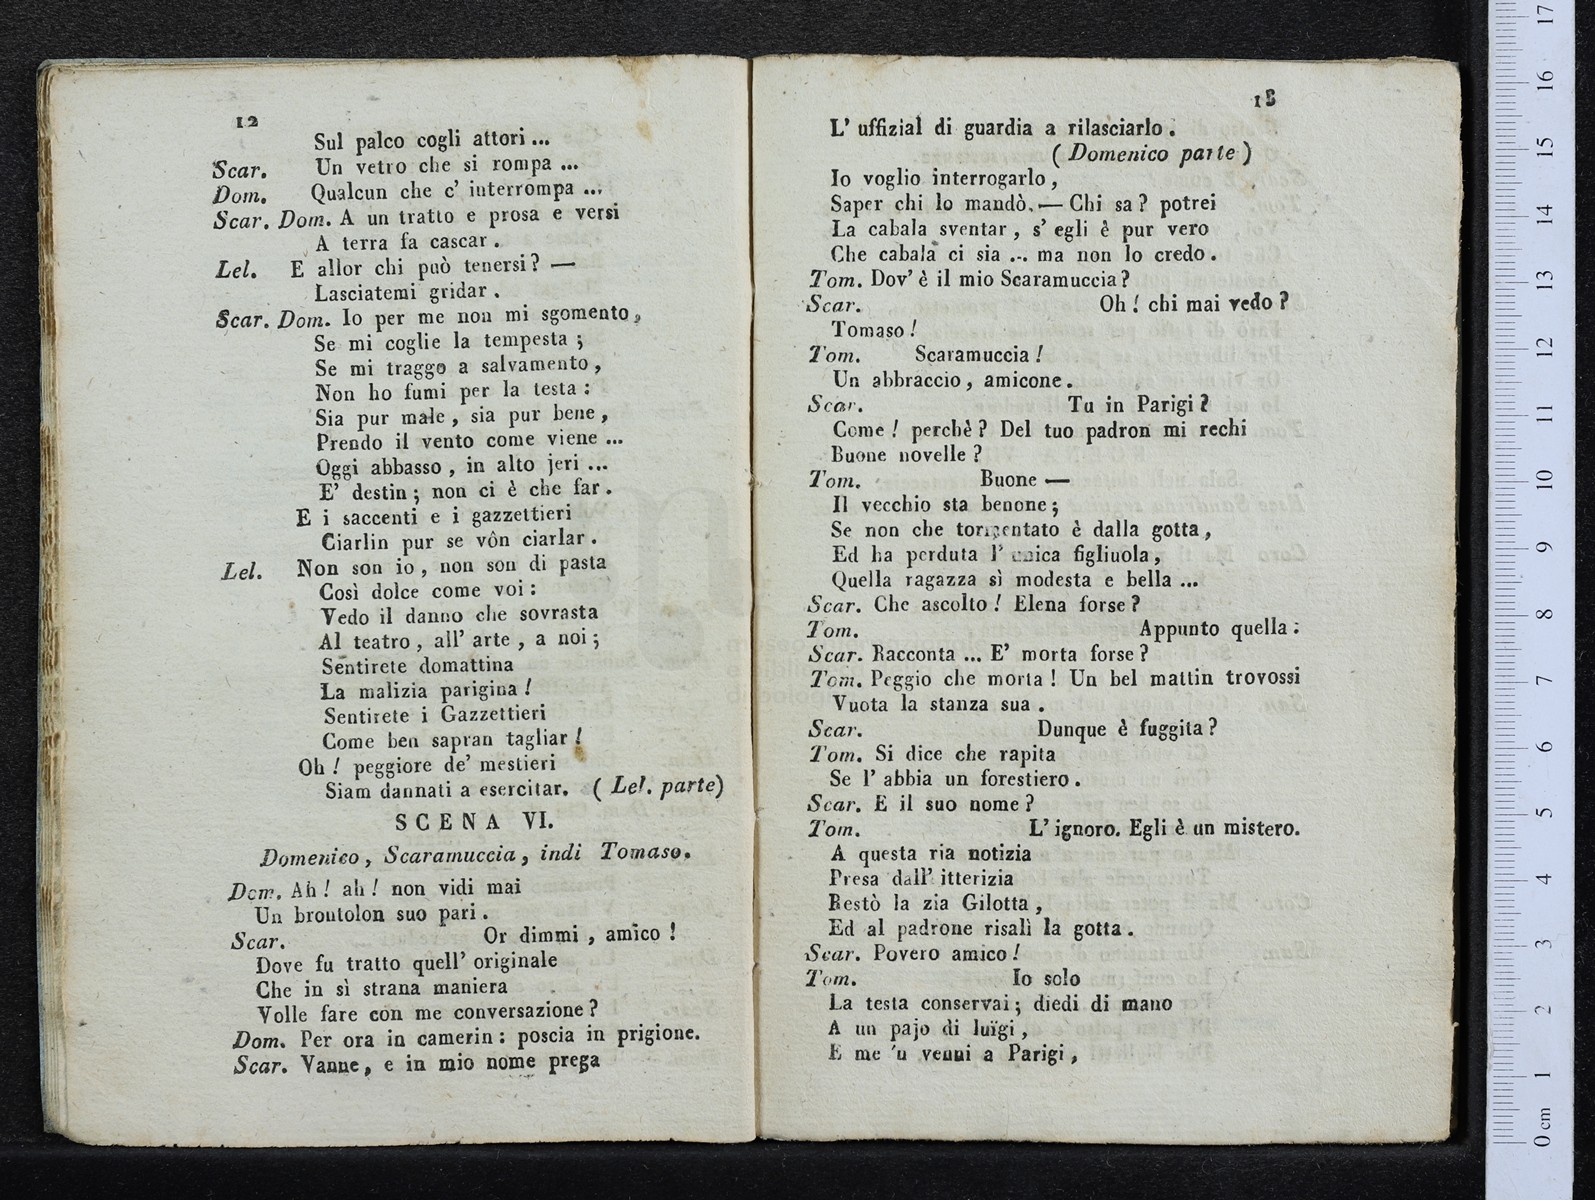 12
Sul palco cogli attori ...
Scar. Un vetro che si rompa ...
Dom. Qualcun che c' interrompa ...
Scar. Dom. A un tratto e prosa e versi
A terra fa cascar.
Lel. E allor chi può tenersi? —
Lasciatemi gridar.
Scar. Dom. Io per me non mi sgomento,
Se mi coglie la tempesta;
Se mi traggo a salvamento,
Non ho fumi per la testa:
Sia pur male, sia pur bene,
Prendo il vento come viene ...
Oggi abbasso, in alto jeri ...
E' destin; non ci è che far.
E i saccenti e i gazzettieri
Ciarlin pur se vôn ciarlar.
Lel. Non son io, non son di pasta
Così dolce come voi:
Vedo il danno che sovrasta
Al teatro, all' arte, a noi;
Sentirete domattina
La malizia parigina!
Sentirete i Gazzettieri
Come ben sapran tagliar!
Oh! peggiore de' mestieri
Siam dannati a esercitar. (Lel. parte)
SCENA VI.
Domenico, Scaramuccia, indi Tomaso.
Dom. Ah! ah! non vidi mai
Un brontolon suo pari.
Scar. Or dimmi, amico!
Dove fu tratto quell' originale
Che in sì strana maniera
Volle fare con me conversazione?
Dom. Per ora in camerin: poscia in prigione.
Scar. Vanne, e in mio nome prega
13
L' uffizial di guardia a rilasciarlo.
(Domenico parte)
Io voglio interrogarlo,
Saper chi lo mandò. — Chi sa? potrei
La cabala sventar, s' egli è pur vero
Che cabala ci sia ... ma non lo credo.
Tom. Dov' è il mio Scaramuccia?
Scar. Oh! chi mai vedo?
Tomaso!
Tom. Scaramuccia!
Un abbraccio, amicone.
Scar. Tu in Parigi?
Come! perchè? Del tuo padron mi rechi
Buone novelle?
Tom. Buone —
Il vecchio sta benone;
Se non che tormentato è dalla gotta,
Ed ha perduta l' unica figliuola,
Quella ragazza sì modesta e bella ...
Scar. Che ascolto! Elena forse?
Tom. Appunto quella:
Scar. Racconta ... E' morta forse?
Tom. Peggio che morta! Un bel mattin trovossi
Vuota la stanza sua.
Scar. Dunque è fuggita?
Tom. Si dice che rapita
Se l' abbia un forestiero.
Scar. E il suo nome?
Tom. L' ignoro. Egli è un mistero.
A questa ria notizia
Presa dall' itterizia
Restò la zia Gilotta,
Ed al padrone risalì la gotta.
Scar. Povero amico!
Tom. Io solo
La testa conservai; diedi di mano
A un pajo di luïgi,
E me 'n venni a Parigi,
17
16
15
14
13
12
11
10
9
8
7
6
5
4
3
2
1
0 cm